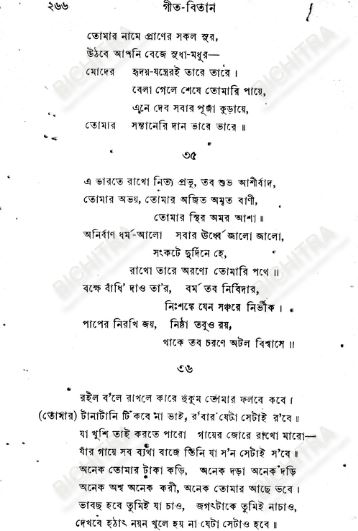 ২৬৬ গীত-বিতান
তোমার নামে প্রাণের সকল সুর,
উঠবে আপনি বেজে সুধা-মধুর—
মোদের হৃদয়-যন্ত্রেরই তারে তারে।
বেলা গেলে শেষে তোমারি পায়ে,
এনে দেব সবার পূজা কুড়ায়ে,
তোমার সন্তানেরি দান ভারে ভারে॥
৩৫
এ ভারতে রাখো নিত্য প্রভু, তব শুভ আশীর্বাদ,
তোমার অভয়, তোমার অজিত অমৃত বাণী,
তোমার স্থির অমর আশা॥
অনির্বাণ ধর্ম-আলো সবার ঊর্ধ্বে জ্বালো জ্বালো,
সংকটে দুর্দিনে হে,
রাখো তারে অরণ্যে তোমারি পথে॥
বক্ষে বাঁধি' দাও তা'র, বর্ম তব নির্বিদার,
নিঃশঙ্কে যেন সঞ্চরে নির্ভীক।
পাপের নিরখি জয়, নিষ্ঠা তবুও রয়,
থাকে তব চরণে অটল বিশ্বাসে॥
৩৬
রইল ব'লে রাখলে কারে হুকুম তোমার ফলবে কবে।
(তোমার) টানাটানি টিকবে না ভাই, র'বার যেটা সেটাই র'বে॥
যা খুশি তাই করতে পারো গায়ের জোরে রাখো মারো—
যাঁর গায়ে সব ব্যথা বাজে তিনি যা স'ন সেটাই স'বে॥
অনেক তোমার টাকা কড়ি, অনেক দড়া অনেক দড়ি
অনেক অশ্ব অনেক করী, অনেক তোমার আছে ভবে।
ভাবছ হবে তুমিই যা চাও, জগৎটাকে তুমিই নাচাও,
দেখবে হঠাৎ নয়ন খুলে হয় না যেটা সেটাও হবে॥
BICHITRA